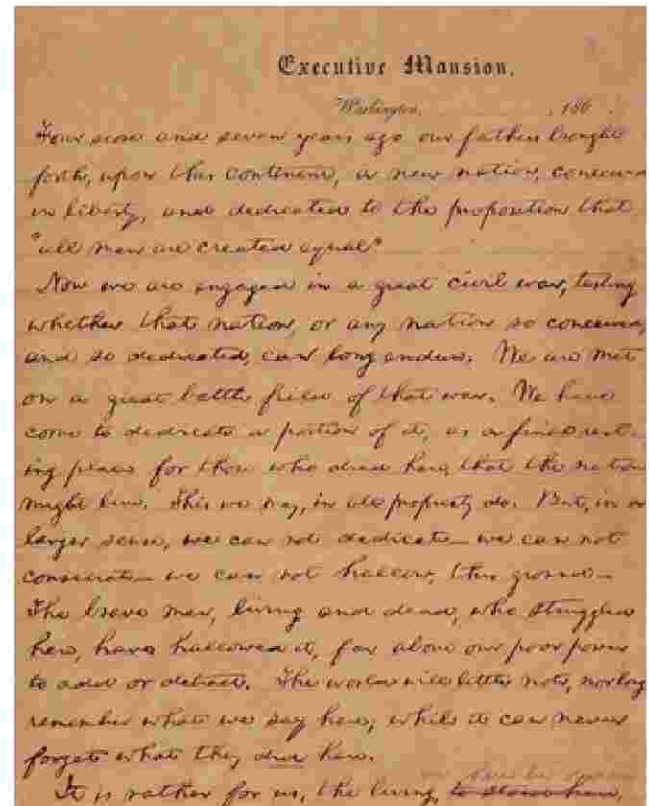 Executive Mansion,
Washington, , 186 .
Four score and seven years ago our fathers brought
forth, upon this continent, a new nation, conceived
in liberty, and dedicated to the proposition that
"all men are created equal"
Now we are engaged in a great civil war, testing
whether that nation, or any nation so conceived,
and so dedicated, can long endure. We are met
on a great battle field of that war. We have
come to dedicate a portion of it, as a final rest-
ing place for those who died here, that the nation
might live. This we may, in all propriety do. But, in a
larger sense, we can not dedicate — we can not
consecrate — we can not hallow, this ground —
The brave men, living and dead, who struggled
here, have hallowed it, far above our poor power
to add or detract. The world will little note, nor long
remember what we say here; while it can never
forget what they did here.
It is rather for us, the living,